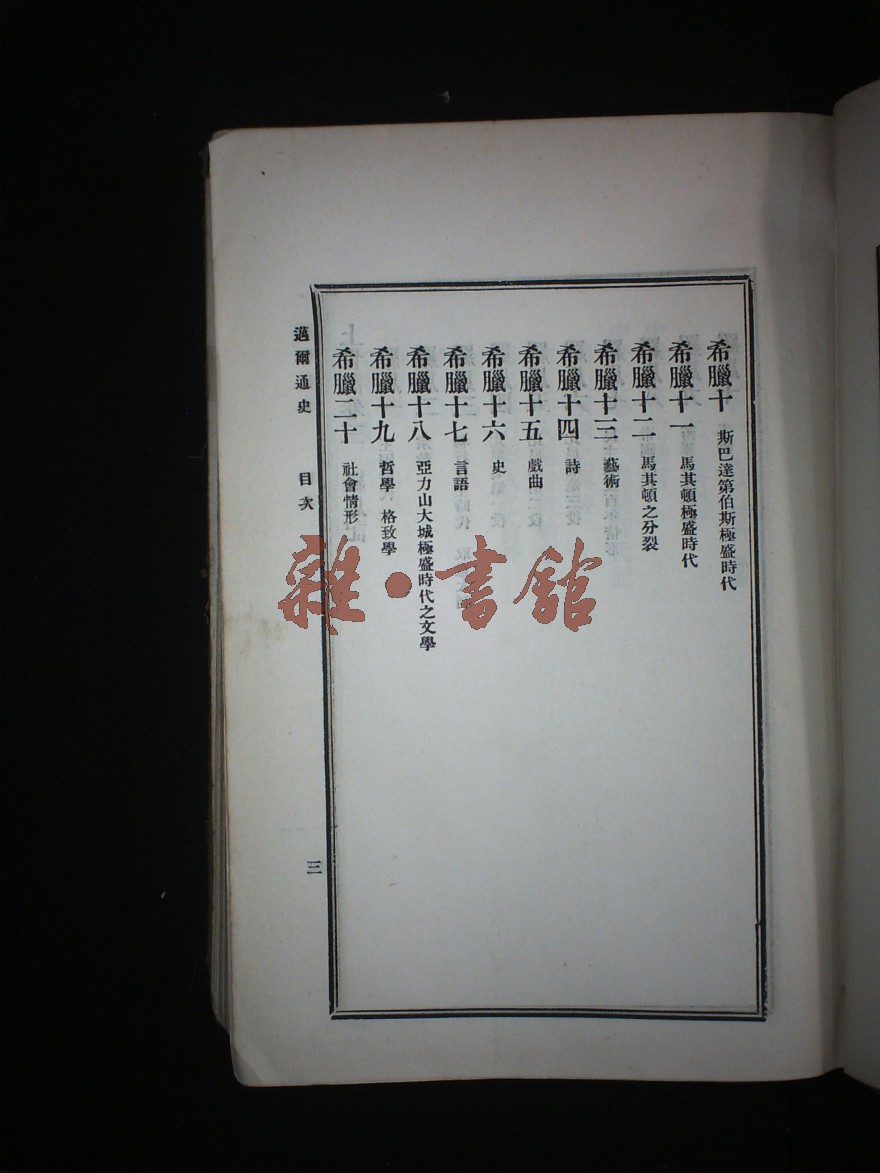 希臘十　斯巴達第伯斯極盛時代
希臘十一　馬其頓極盛時代
希臘十二　馬其頓之分裂
希臘十三　藝術
希臘十四　詩
希臘十五　戲曲
希臘十六　史
希臘十七　言語
希臘十八　亞力山大城極盛時代之文學
希臘十九　哲學　格致學
希臘二十　社會情形
邁爾通史　目次　三
雜·書館